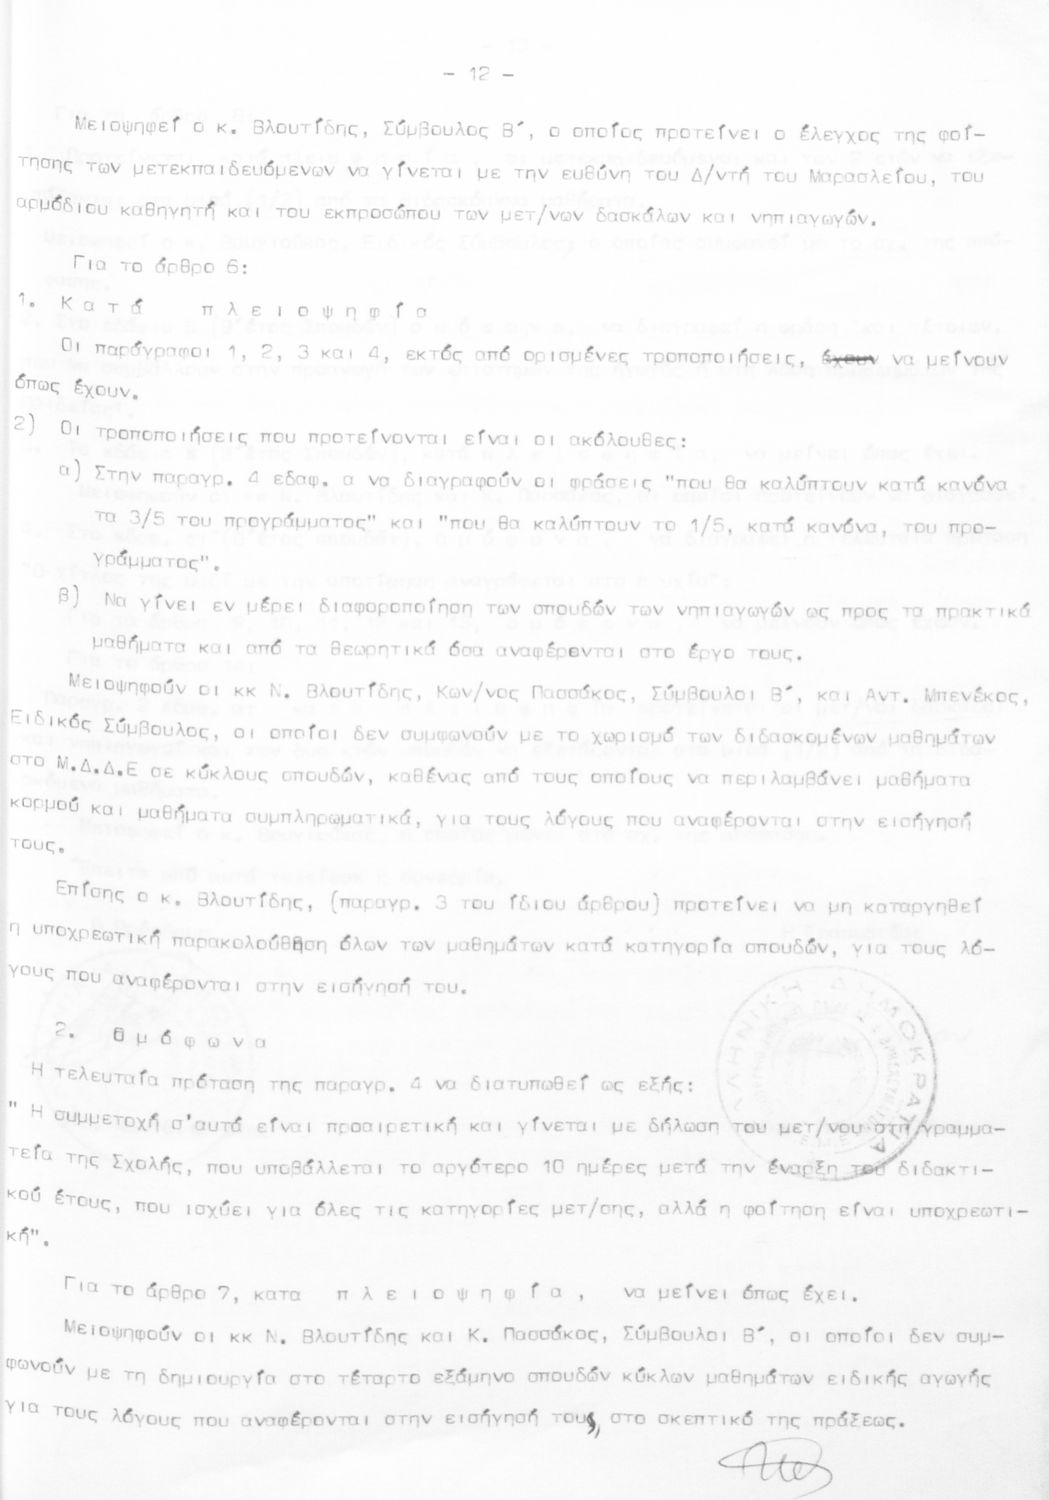 - 12 -
Μειοψηφεί ο κ. Βλουτίδης, Σύμβουλος Β΄, ο οποίος προτείνει ο έλεγχος της φοί-
τησης των μετεκπαιδευόμενων να γίνεται με την ευθύνη του Δ/ντή του Μαρασλείου, του
αρμόδιου καθηγητή και του εκπροσώπου των μετ/νων δασκάλων και νηπιαγωγών.
Για το άρθρο 6:
1. Κ α τ ά   π λ ε ι ο ψ η φ ί α
Οι παράγραφοι 1, 2, 3 και 4, εκτός από ορισμένες τροποποιήσεις, έχουν να μείνουν
όπως έχουν.
2) Οι τροποποιήσεις που προτείνονται είναι οι ακόλουθες:
α) Στην παραγρ. 4 εδαφ. α να διαγραφούν οι φράσεις "που θα καλύπτουν κατά κανόνα
τα 3/5 του προγράμματος" και "που θα καλύπτουν το 1/5, κατά κανόνα, του προ-
γράμματος".
β) Να γίνει εν μέρει διαφοροποίηση των σπουδών των νηπιαγωγών ως προς τα πρακτικά
μαθήματα και από τα θεωρητικά όσα αναφέρονται στο έργο τους.
Μειοψηφούν οι κκ Ν. Βλουτίδης, Κων/νος Πασσάκος, Σύμβουλοι Β΄, και Αντ. Μπενέκος,
Ειδικός Σύμβουλος, οι οποίοι δεν συμφωνούν με το χωρισμό των διδασκομένων μαθημάτων
στο Μ.Δ.Δ.Ε σε κύκλους σπουδών, καθένας από τους οποίους να περιλαμβάνει μαθήματα
κορμού και μαθήματα συμπληρωματικά, για τους λόγους που αναφέρονται στην εισήγησή
τους.
Επίσης ο κ. Βλουτίδης, (παραγρ. 3 του ίδιου άρθρου) προτείνει να μη καταργηθεί
η υποχρεωτική παρακολούθηση όλων των μαθημάτων κατά κατηγορία σπουδών, για τους λό-
γους που αναφέρονται στην εισήγησή του.
2. Ο μ ό φ ω ν α
Η τελευταία πρόταση της παραγρ. 4 να διατυπωθεί ως εξής:
" Η συμμετοχή σ'αυτά είναι προαιρετική και γίνεται με δήλωση του μετ/νου στη γραμμα-
τεία της Σχολής, που υποβάλλεται το αργότερο 10 ημέρες μετά την έναρξη του διδακτι-
κού έτους, που ισχύει για όλες τις κατηγορίες μετ/σης, αλλά η φοίτηση είναι υποχρεωτι-
κή".
Για το άρθρο 7, κατα   π λ ε ι ο ψ η φ ί α ,   να μείνει όπως έχει.
Μειοψηφούν οι κκ Ν. Βλουτίδης και Κ. Πασσάκος, Σύμβουλοι Β΄, οι οποίοι δεν συμ-
φωνούν με τη δημιουργία στο τέταρτο εξάμηνο σπουδών κύκλων μαθημάτων ειδικής αγωγής
για τους λόγους που αναφέρονται στην εισήγησή τους, στο σκεπτικό της πράξεως.
ΕΛΛΗΝΙΚΗ ΔΗΜΟΚΡΑΤΙΑ